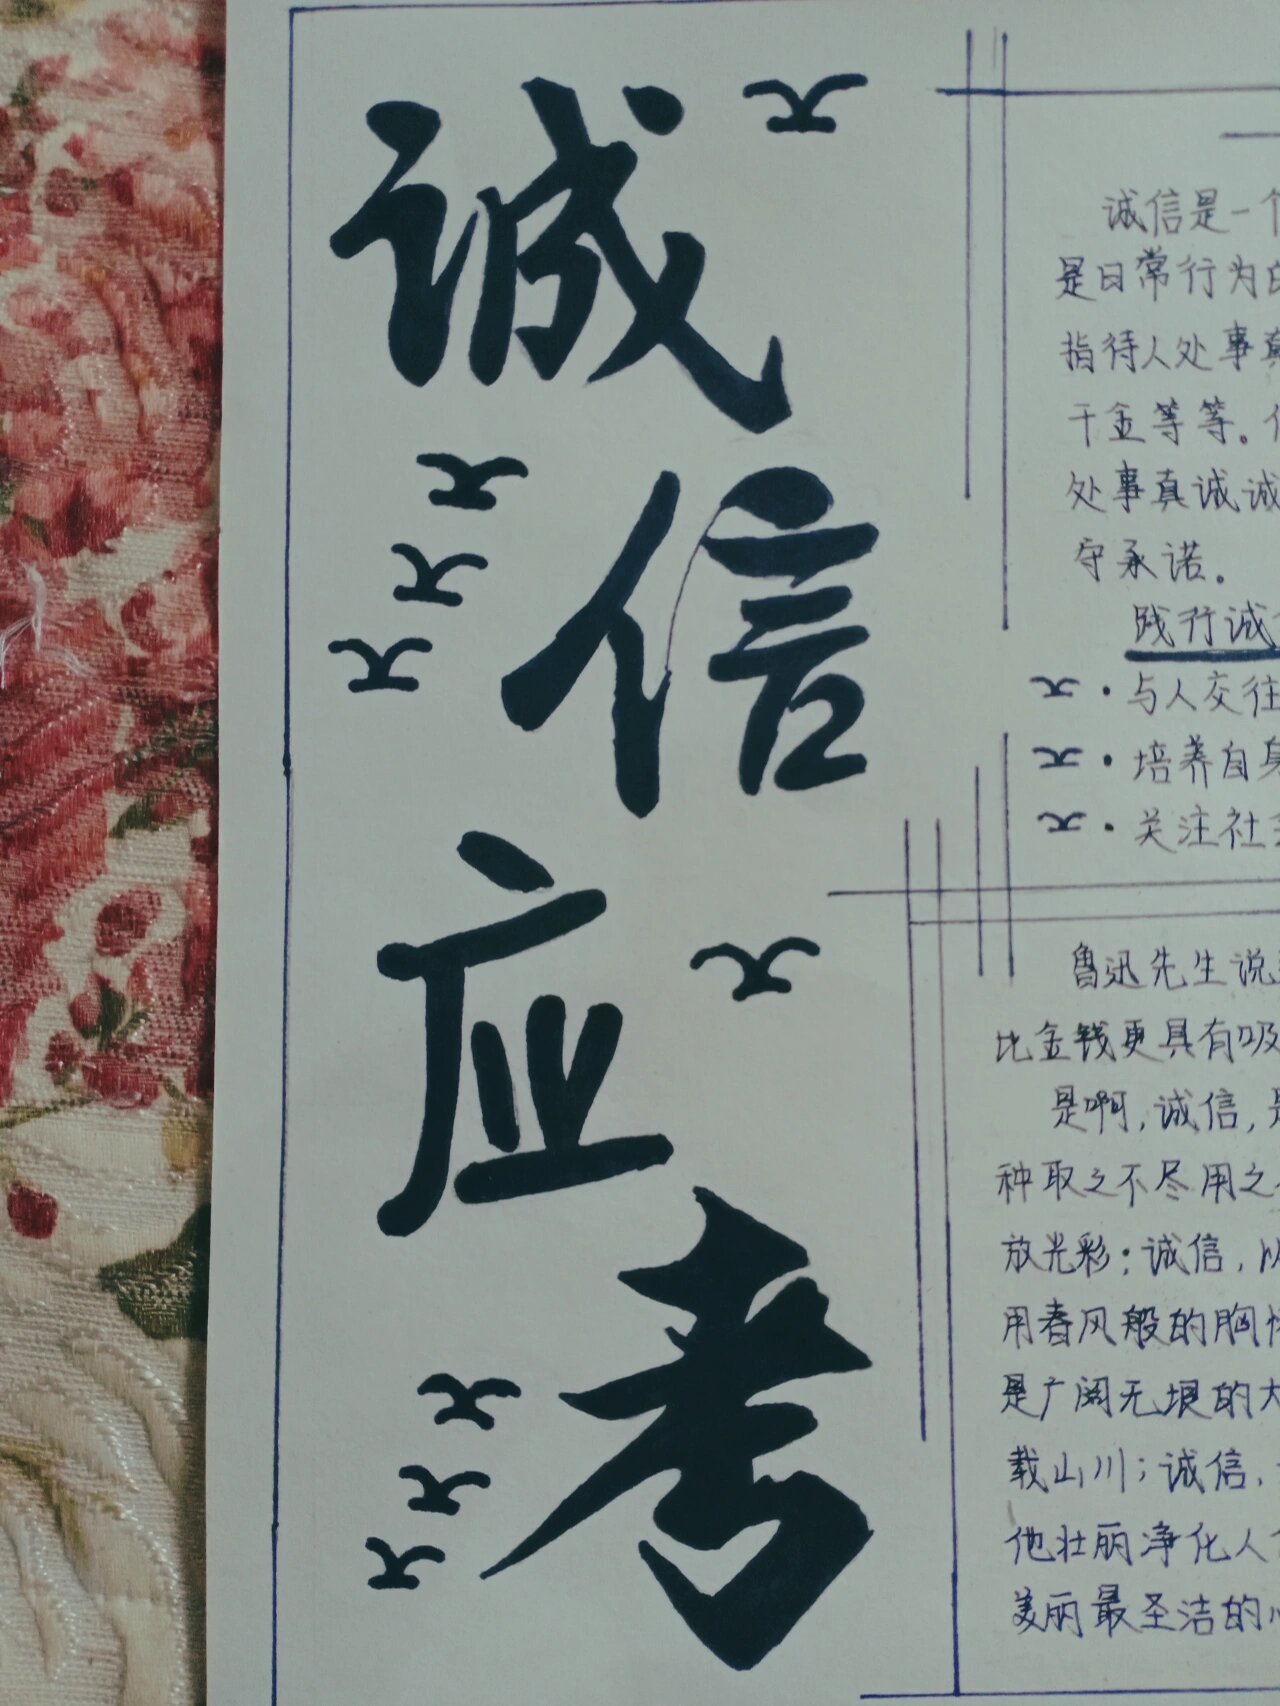 诚信应考
诚信是一
是日常行为
指待人处事真
千金等等。
处事真诚诚
守承诺。
践行诚
·与人交往
·培养自身
·关注社
鲁迅先生说
比金钱更具有吸
是啊,诚信,是
种取之不尽用之
放光彩;诚信,以
用春风般的胸怀
是广阔无垠的大
载山川;诚信,
他壮丽净化人
美丽最圣洁的心